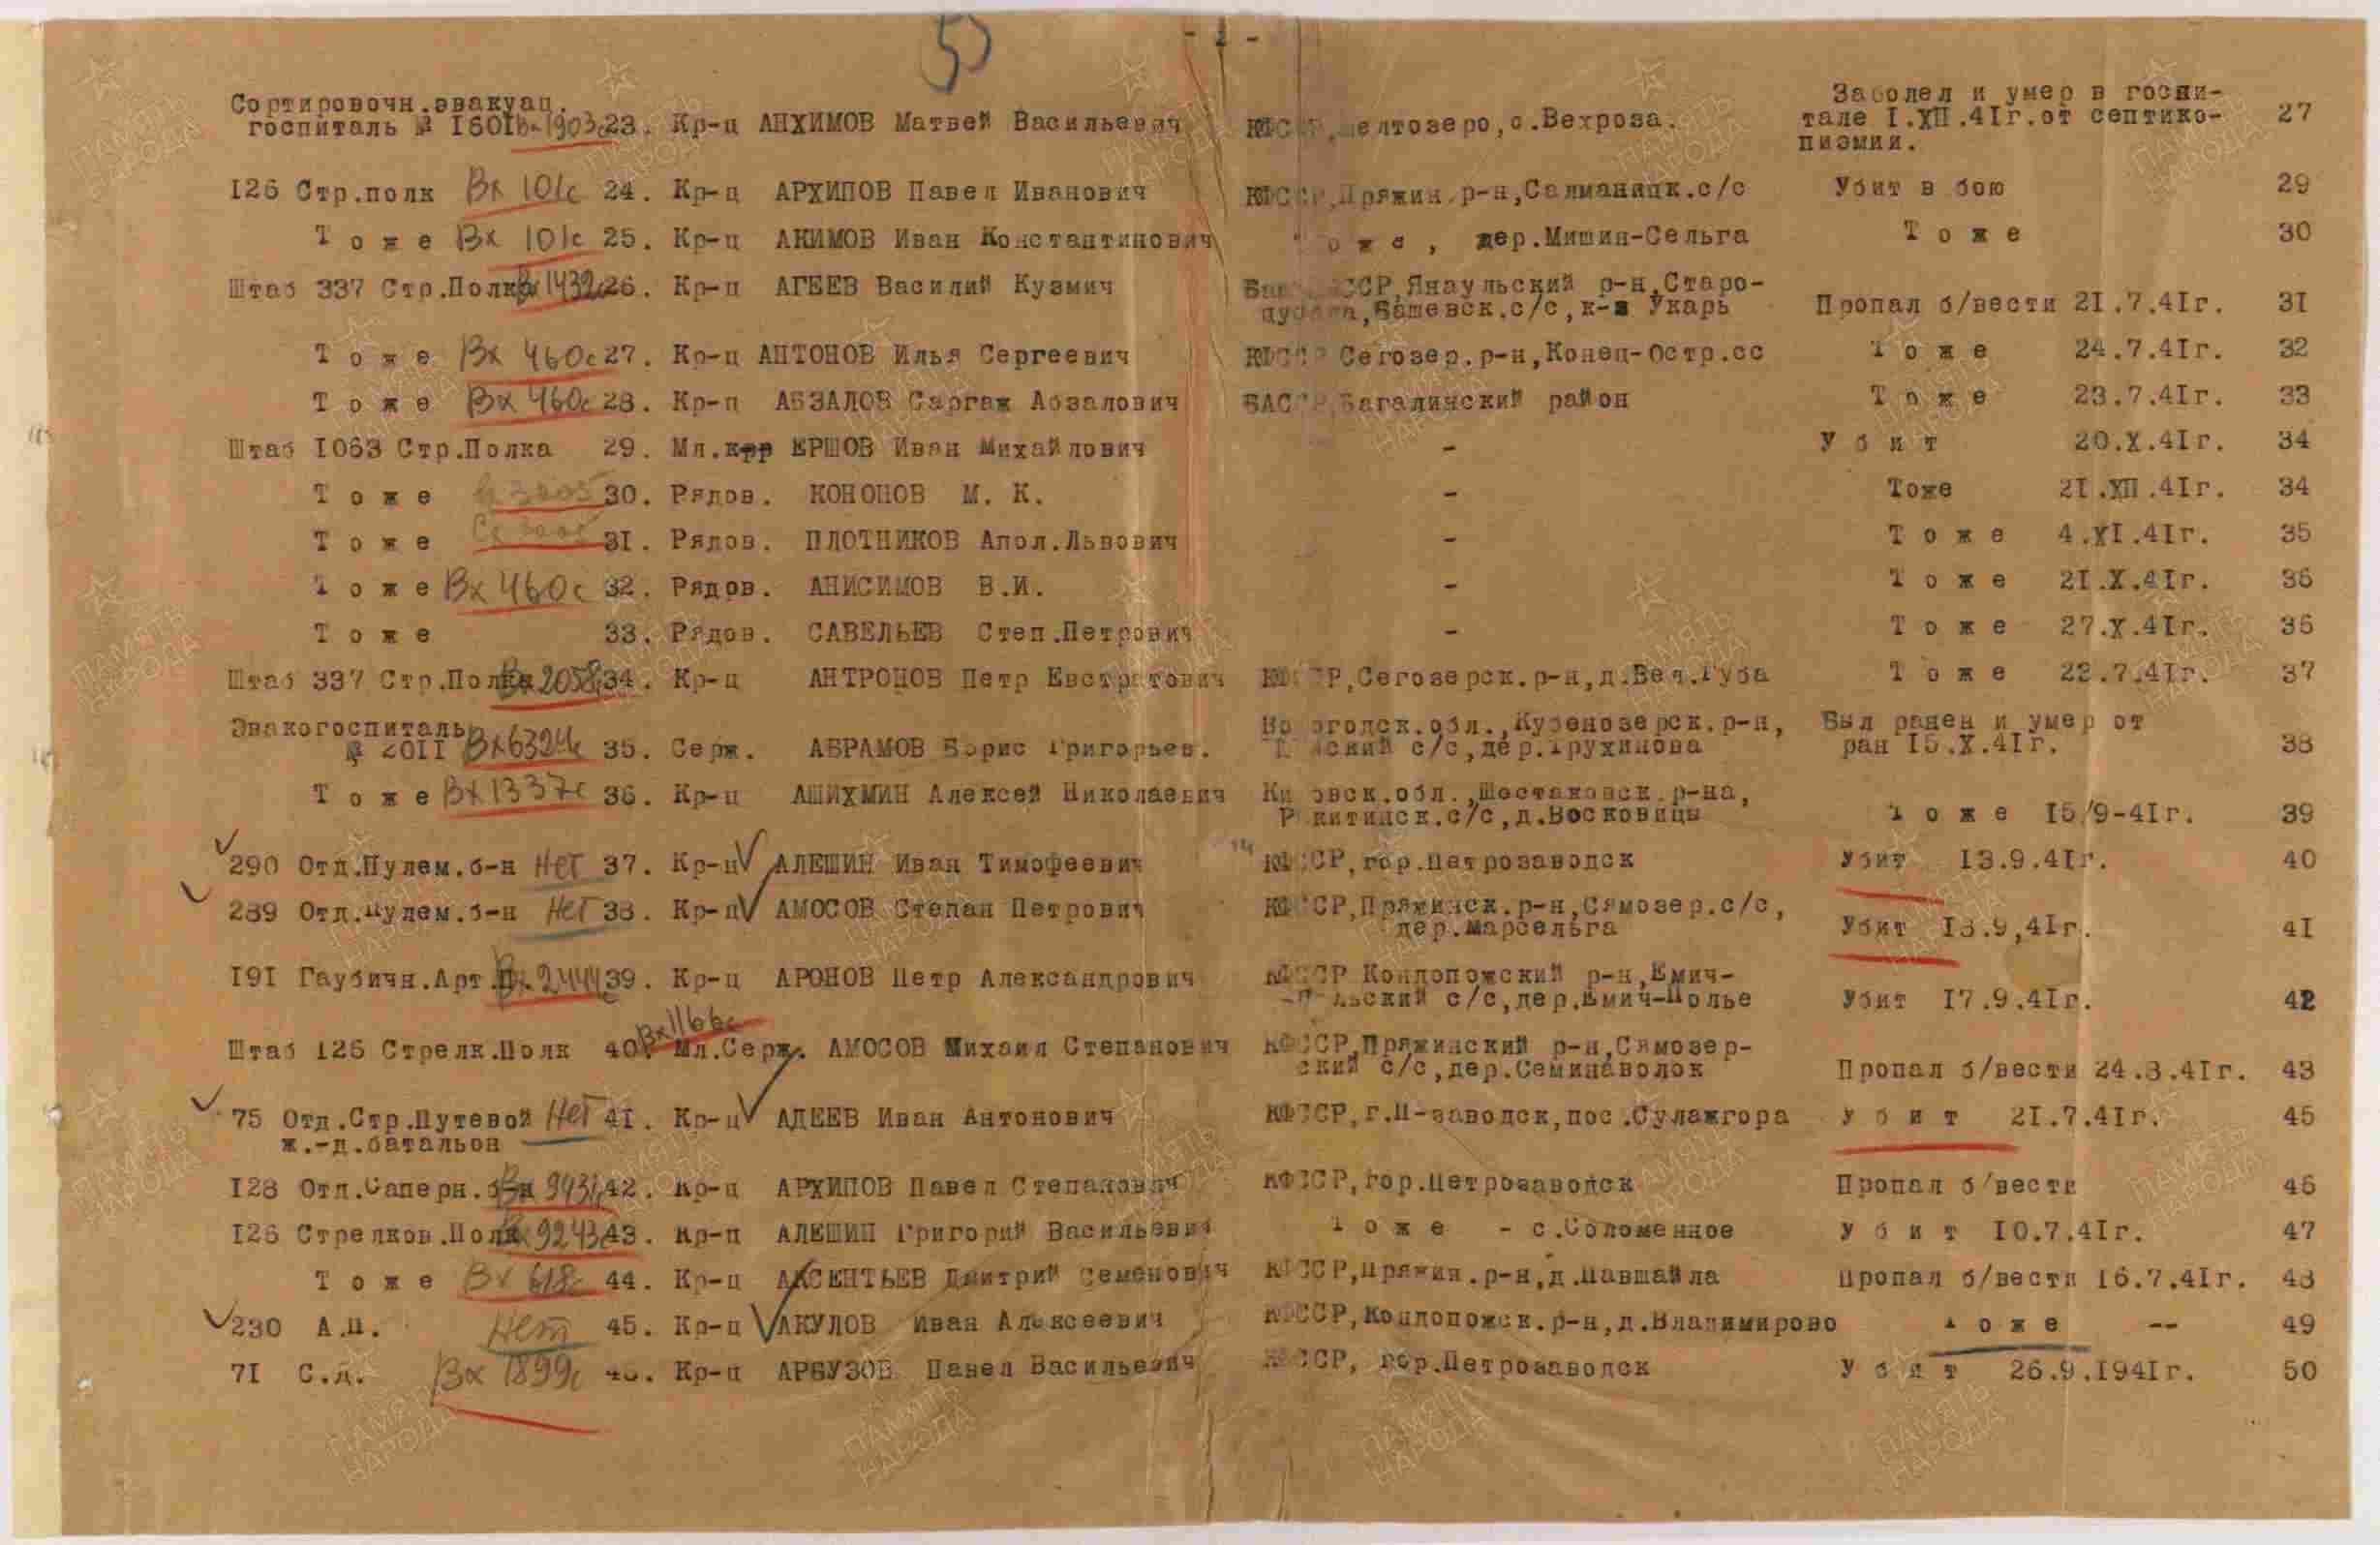 53
- 2 -
Сортировочн.эвакуац.
госпиталь № 1601 Вх-1903с 23. Кр-ц АНХИМОВ Матвей Васильевич КФССР, Шелтозеро, с.Вехроза. Заболел и умер в госпи-
тале I.XII.41г.от септико-
пиэмии. 27
126 Стр.полк Вх 101с 24. Кр-ц АРХИПОВ Павел Иванович КФССР,Пряжин.р-н,Салманицк.с/с Убит в бою 29
Т о ж е Вх 101с 25. Кр-ц АКИМОВ Иван Константинович Т о ж е , дер.Мишин-Сельга Т о ж е 30
Штаб 337 Стр.Полка Вх 1432с 26. Кр-ц АГЕЕВ Василий Кузмич Баш. АССР,Янаульский р-н,Старо-
,Башевск.с/с,к-з Укарь Пропал б/вести 21.7.41г. 31
Т о ж е Вх 460с 27. Кр-ц АНТОНОВ Илья Сергеевич КФССР Сегозер.р-н,Конец-Остр.сс Т о ж е 24.7.41г. 32
Т о ж е Вх 460с 28. Кр-ц АБЗАЛОВ Саргаж Абзалович БАССР,Багалинский район Т о ж е 23.7.41г. 33
Штаб 1063 Стр.Полка 29. Мл. ЕРШОВ Иван Михайлович - У б и т 20.X.41г. 34
Т о ж е 30. Рядов. КОНОНОВ М. К. - Тоже 21.XII.41г. 34
Т о ж е 31. Рядов. ПЛОТНИКОВ Апол.Львович - Т о ж е 4.XI.41г. 35
Т о ж е Вх 460с 32. Рядов. АНИСИМОВ В.И. - Т о ж е 21.X.41г. 36
Т о ж е 33. Рядов. САВЕЛЬЕВ Степ.Петрович - Т о ж е 27.X.41г. 36
Штаб 337 Стр.Полка Вх 2058 34. Кр-ц АНТРОНОВ Петр Евстратович КФССР,Сегозерск.р-н,д.Вел.Губа Т о ж е 22.7.41г. 37
Эвакогоспиталь
№ 2011 Вх 6324с 35. Серж. АБРАМОВ Борис Григорьев. Вологодск.обл.,Кубенозерск.р-н,
с/с,дер.Трухинова Был ранен и умер от
ран 15.X.41г. 38
Т о ж е Вх 1337с 36. Кр-ц АШИХМИН Алексей Николаевич Кировск.обл.,Шестаковск.р-на,
Ракитинск.с/с,д.Восковицы Т о ж е 15/9-41г. 39
290 Отд.Пулем.б-н Нет 37. Кр-ц АЛЕШИН Иван Тимофеевич КФССР,гор.Петрозаводск Убит 13.9.41г. 40
289 Отд.Пулем.б-н Нет 38. Кр-ц АМОСОВ Степан Петрович КФССР,Пряжинск.р-н,Сямозер.с/с,
дер.Марсельга Убит 13.9,41г. 41
191 Гаубичн.Арт.П. Вх 2444с 39. Кр-ц АРОНОВ Петр Александрович КФССР Кондопожский р-н,Емич-
-Польский с/с,дер.Емич-Полье Убит 17.9.41г. 42
Вх 1166с
Штаб 126 Стрелк.Полк 40. Мл.Серж. АМОСОВ Михаил Степанович КФССР,Пряжинский р-н,Сямозер-
ский с/с,дер.Семинаволок Пропал б/вести 24.8.41г. 43
75 Отд.Стр.Путевой Нет 41. Кр-ц АДЕЕВ Иван Антонович КФССР,г.П-заводск,пос.Сулажгора У б и т 21.7.41г. 45
ж.-д.батальон
128 Отл.Саперн.б-н Вх 9431с 42. Кр-ц АРХИПОВ Павел Степанович КФССР,гор.Петрозаводск Пропал б/вести 46
126 Стрелков.Полк Вх 9243с 43. Кр-ц АЛЕШИН Григорий Васильевич Т о ж е - с.Соломенное У б и т 10.7.41г. 47
Т о ж е Вх 618с 44. Кр-ц АКСЕНТЬЕВ Дмитрий Семенович КФССР,Пряжин.р-н,д.Павшайла Пропал б/вести 16.7.41г. 48
230 А.П. Нет 45. Кр-ц АКУЛОВ Иван Алексеевич КФССР,Кондопожск.р-н,д.Владимирово Т о ж е -- 49
71 С.д. Вх 1899с 46. Кр-ц АРБУЗОВ Павел Васильевич КФССР, гор.Петрозаводск У б и т 26.9.1941г. 50
ПАМЯТЬ НАРОДА